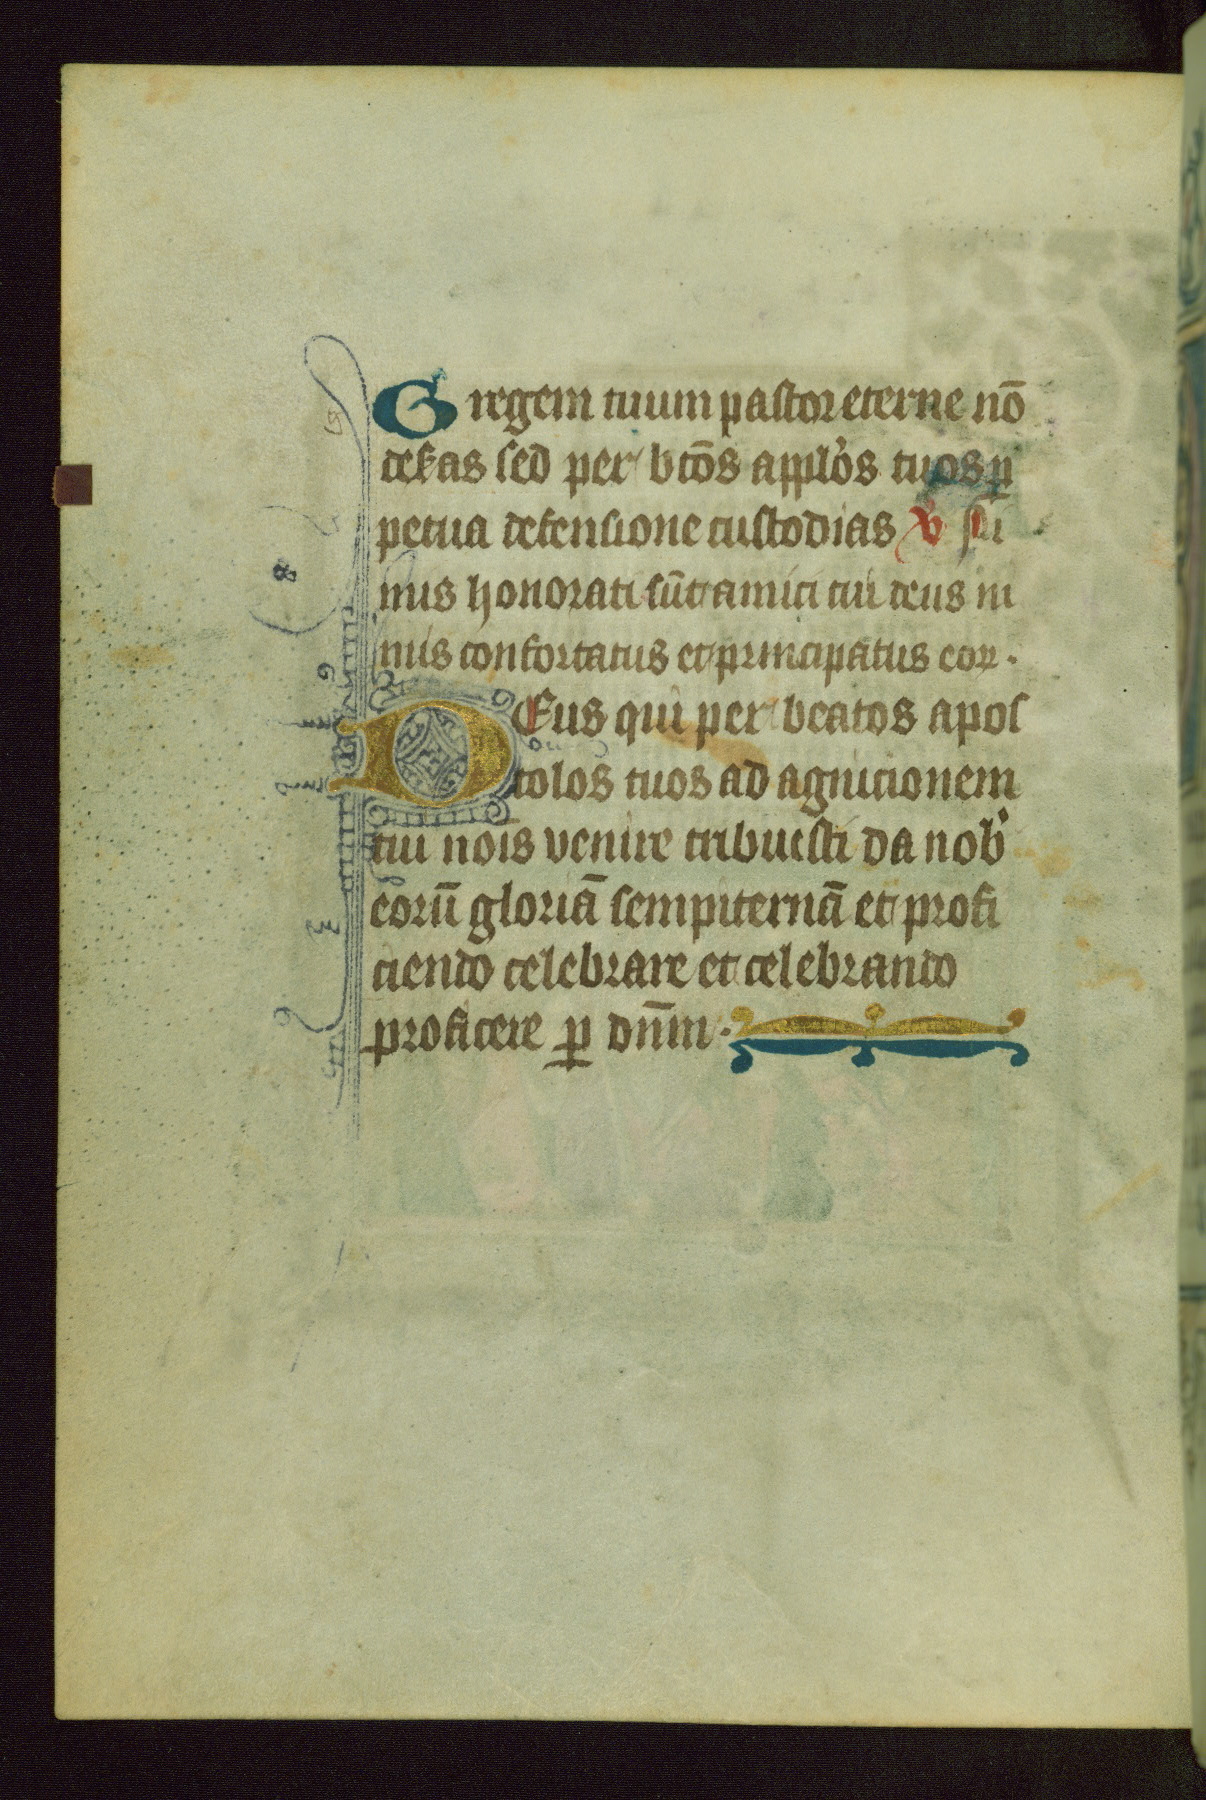 Gregem tuum pastor eterne nō
deseras sed per btōs applōs tuos ꝑ
petua defensione custodias ℣ Ni
mis honorati sūt amici tui deus ni
mis confortatus et principatus eoꝝ.
DEus qui per beatos apos
tolos tuos ad agnicionem
tui nōis venire tribuisti da nob
eorū gloriā sempiternā et profi
ciendo celebrare et celebrando
proficere ꝑ dnm̄.